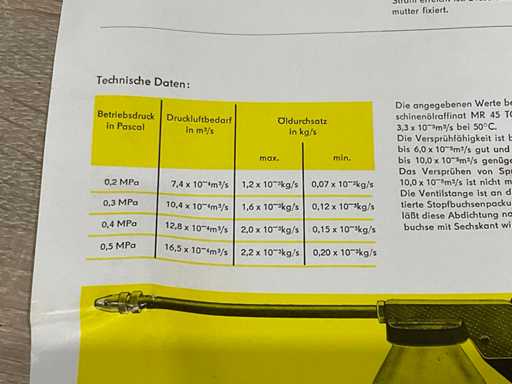 mutter fixiert.
Technische Daten:
Betriebsdruck in Pascal
Druckluftbedarf in m³/s
Öldurchsatz in kg/s
max.
min.
0,2 MPa 7,4 x 10⁻⁴m³/s 1,2 x 10⁻³kg/s 0,07 x 10⁻³kg/s
0,3 MPa 10,4 x 10⁻⁴m³/s 1,6 x 10⁻³kg/s 0,12 x 10⁻³kg/s
0,4 MPa 12,8 x 10⁻⁴m³/s 2,0 x 10⁻³kg/s 0,15 x 10⁻³kg/s
0,5 MPa 16,5 x 10⁻⁴m³/s 2,2 x 10⁻³kg/s 0,20 x 10⁻³kg/s
Die angegebenen Werte be
schinenölraffinat MR 45 TG
bei 50°C.
Die Versprühfähigkeit ist b
gut und
genüge
Das Versprühen von Sp
ist nicht m
Die Ventilstange ist an d
tierte Stopfbuchsenpacku
läßt diese Abdichtung na
buchse mit Sechskant wi